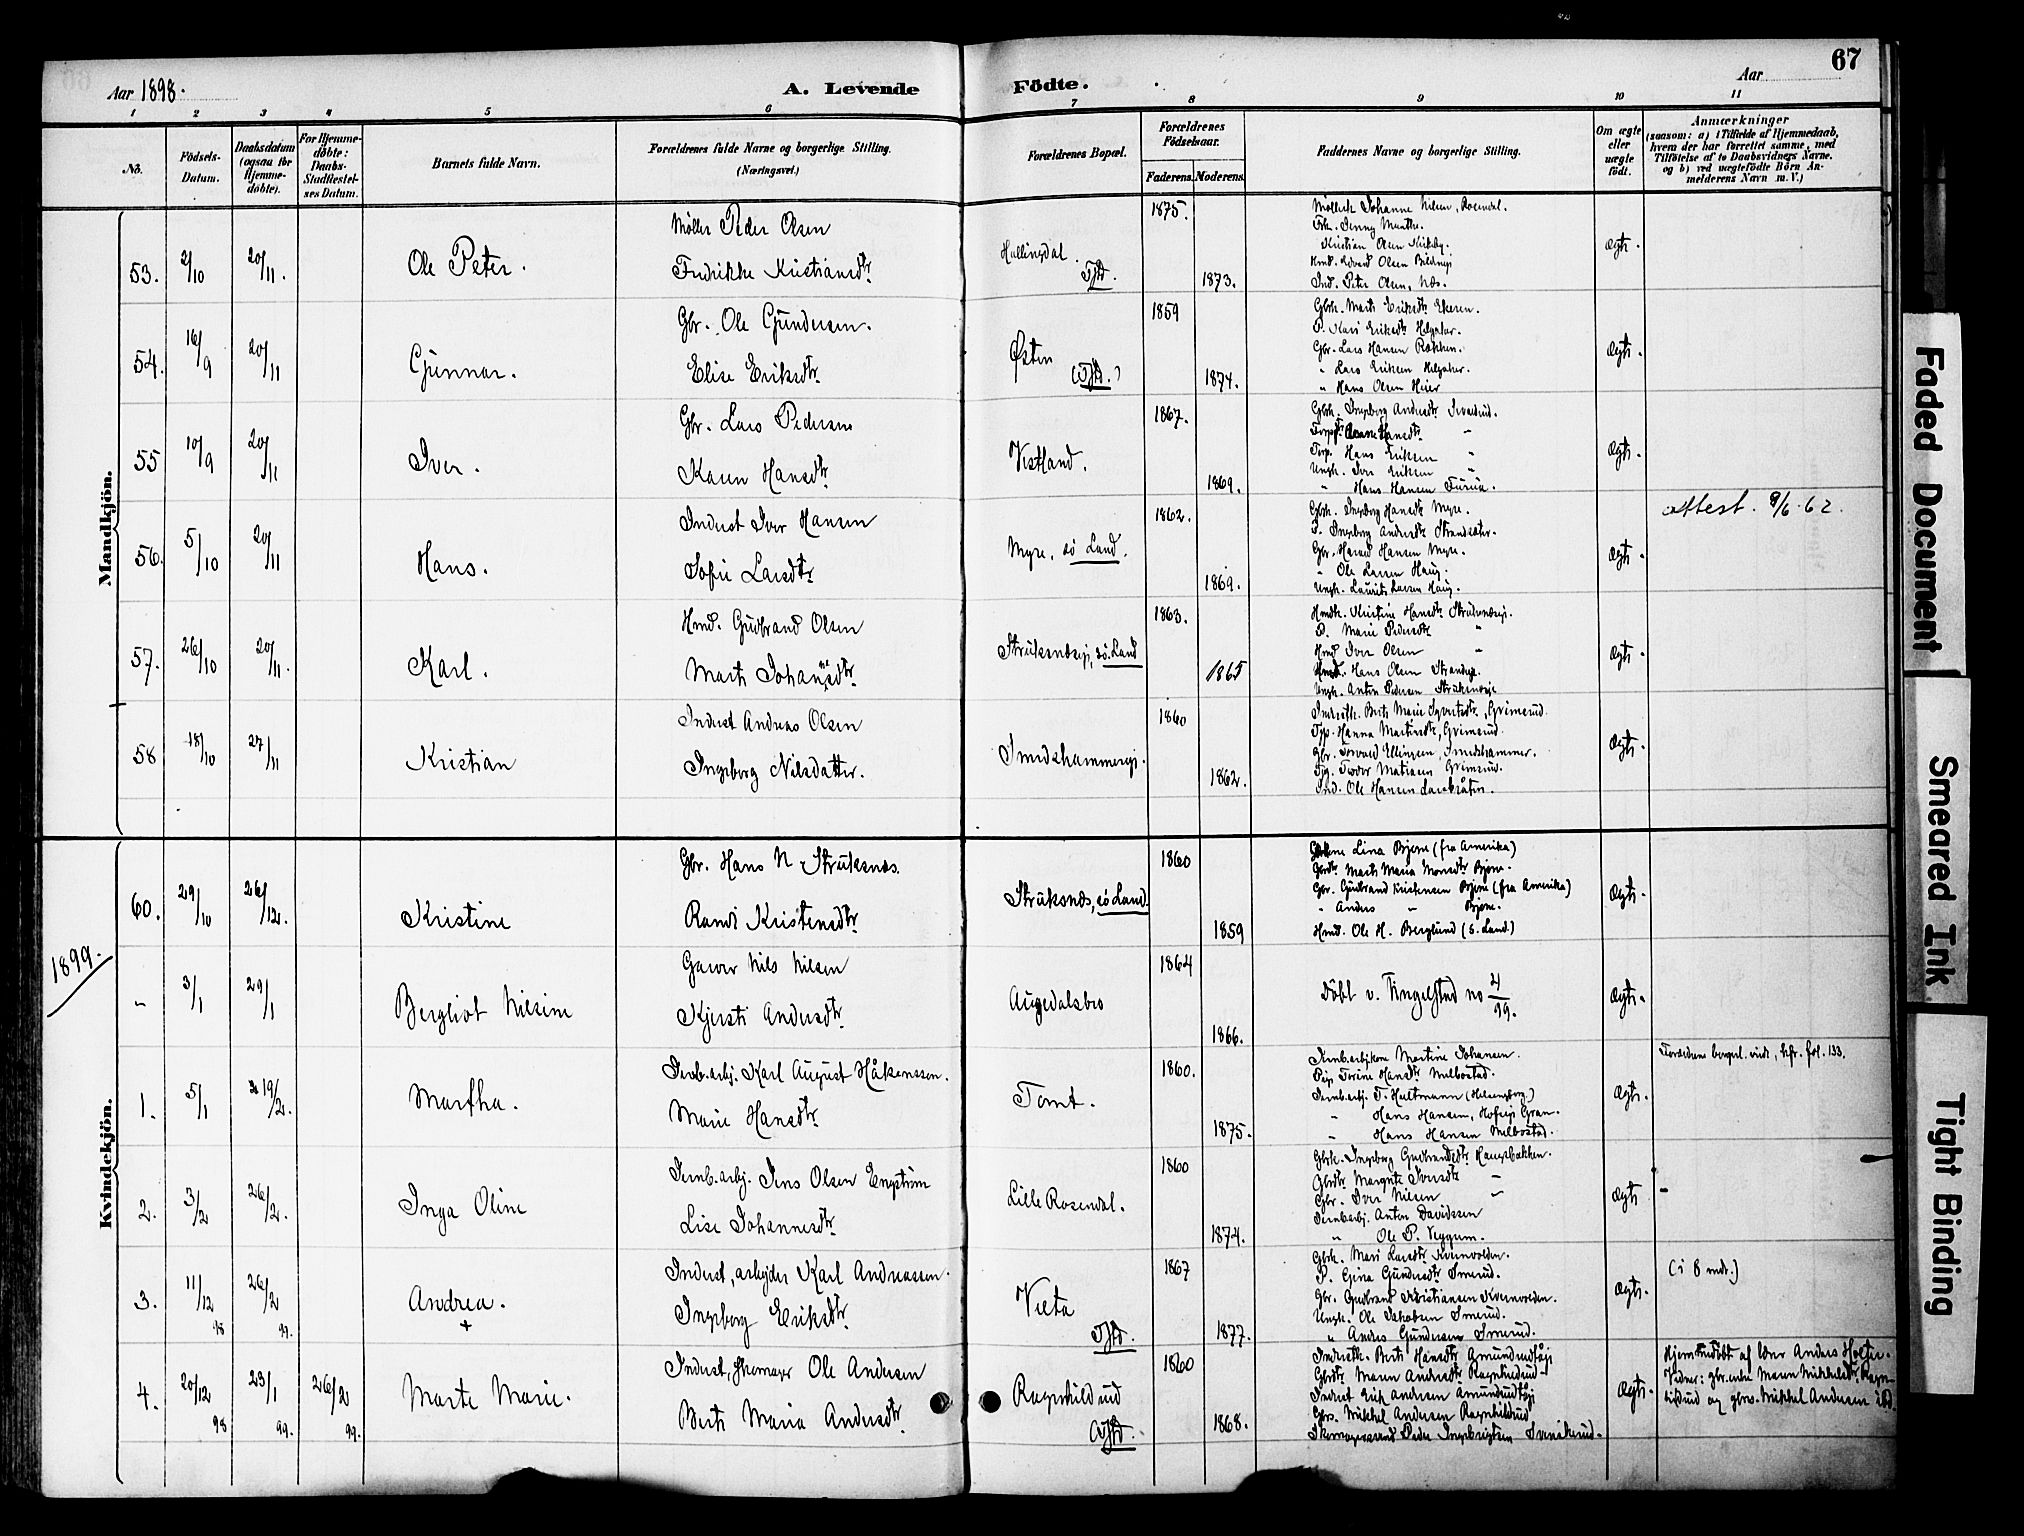 67
Aar 1898.
A. Levende Födte.
Aar
1 2 3 4 5 6 7 8 9 10 11
No.
Födsels-
Datum.
Daabsdatum
(ogsaa for
Hjemme-
döbte).
For Hjemme-
döbte:
Daabs-
Stadfæstel-
ses Datum.
Barnets fulde Navn.
Forældrenes fulde Navne og borgerlige Stilling.
(Næringsvei.)
Forældrenes Bopæl.
Forældrenes
Födselsaar.
Faderens. Moderens.
Faddernes Navne og borgerlige Stilling.
Om ægte
eller
uægte
födt.
Anmærkninger
(saasom: a) i Tilfælde af Hjemmedaab,
hvem der har forrettet samme, med
Tilföielse af to Daabsvidners Navne,
og b) ved uægtefödte Börn An-
melderens Navn m. V.)
Mandkjön.
53. 2/10 20/11. Ole Peter.
Møller Peder Olsen
Fredrikke Kristiansdtr.
Hallingdal.
1875.
1873.
Johanne Nilsen, Rosendal.
Frk. Jenny Munthe.
Kristian Olsen
Ind. Peter Olsen, Næs.
Ægte.
54. 16/9 20/11 Gunnar.
Gbr. Ole Gundersen.
Elise Eriksdtr.
Østen
1859
1874.
Gbrk. Marte Eriksdtr
P. Kari Eriksdtr Helgaker.
Gbr. Lars Hansen
" Lars Eriksen Helgaker.
" Hans Olsen Heier
Ægte.
55 10/9 20/11 Iver.
Gbr. Lars Pedersen
Karen Hansdtr.
Vestland.
1867.
1869.
Gbrk. Ingeborg Andersdtr
Hans Eriksen "
Ungk. Iver Eriksen "
" Hans Hansen
Ægte.
56. 5/10 20/11 Hans.
Inderst Iver Hansen
Sofie Larsdtr.
Myre, sö Land.
1862.
1869.
Gbrk. Ingeborg Hansdtr Myre.
P. Ingeborg Andersdtr
Gbr. Harald Hansen Myre.
" Ole Larsen Haug.
Ungk. Laurits Larsen Haug.
Ægte.
Attest. 9/6-62.
57. 26/10 20/11. Karl.
Hmd. Gudbrand Olsen
Marte Johannesdtr.
Struksnæsei, sö. Land
1863.
1865
Hmdk. Kristine Hansdtr Struksnæsei.
P. Marie Pedersdtr "
Hmd Iver Olsen "
Hmd. Hans Olsen
Ungk. Anton Pedersen Struksnæsei
Ægte.
58 18/10 27/11 Kristian
Inderst Andreas Olsen
Ingeborg Nilsdatter.
Smedshammerei.
1860
1862.
Inderstk. Berte Marie Syvertsdtr, Grimsrud.
Hanna Martinsdtr, Grimsrud.
Gbr. Torvald Ellingsen, Smedshammer.
Teodor Matisen Grimsrud.
Ind. Ole Hansen
Ægte.
Kvindekjön.
60. 29/10 26/12. Kristine
Gbr. Hans N. Struksnæs.
Randi Kristensdtr.
Struksnæs, sö Land.
1860
1859
Lina Bjerre (fra Amerika)
Gbrdtr. Marte Maria Monsdtr Bjerre.
Gbr. Gudbrand Kristensen Bjerre (fra Amerika)
" Anders " Bjerre.
Hmd. Ole H. Berglund (S. Land.)
Ægte.
1899.
" 3/1 29/1 Bergliot Nilsine
Garver Nils Nilsen
Kjersti Andersdtr.
Augedalsbro
1864
1866.
Döbt v. Tingelstad no 4/99.
Ægte.
1. 5/1 19/2. Martha.
Jernb.arbj. Karl August Håkensson.
Marie Hansdtr.
Tomt.
1860.
1875.
Jernb.arbjkone Martine Johansen.
Pige Torine Hansdtr Melbostad.
Jernb.arbj. T. Hultmann (Helsingborg.)
" Hans Hansen, Hofsei Gran.
" Hans Hansen Melbostad.
Ægte.
Forældrene borgerl. viede, kfr. fol. 133.
2. 3/2 26/2. Inga Oline
Jernb.arbj. Jens Olsen Engström
Lise Johannesdtr.
Lille Rosendal.
1860
1874.
Gbrk. Ingeborg Gudbrandsdtr Haugsbakken.
Gbrdtr. Margrete Iversdtr "
Gbr. Iver Nilsen "
Jernb.arbj. Anton Davidssen
" Ole P. Veggum.
Ægte
3. 11/12 98 26/2 99. Andrea. +
Inderst, arbejder Karl Andreassen.
Ingeborg Eriksdtr.
Velta
1867
1877.
Gbrk. Mari Larsdtr Kvernvolden.
P. Gina Gundersdtr Smerud.
Gbr. Gudbrand Kristiansen Kvernvolden.
Ungk. Ole Jakobsen Smerud.
" Anders Gundersen Smerud.
Ægte.
(i 8 mdr.)
4. 20/12 98 23/1 99. 26/2 99. Marte Marie.
Inderst, skomager Ole Andersen
Berte Maria Andersdtr.
Ragnhildrud
1860
1868.
Inderstk. Berte Hansdtr Amundrudsei
Gbrdtr. Maren Andersdtr Ragnhildrud
Inderst Erik Andersen Amundrudsei
Gbrs. Mikkel Andersen Ragnhildrud
Peder Ingebrigtsen
Ægte.
Hjemmedöbt af lærer Anders
Vidner: gbr.enke Maren Mikkelsdtr Ragn-
hildrud og gbrs. Mikkel Andersen ibd.
Faded Document
Smeared Ink
Tight Binding